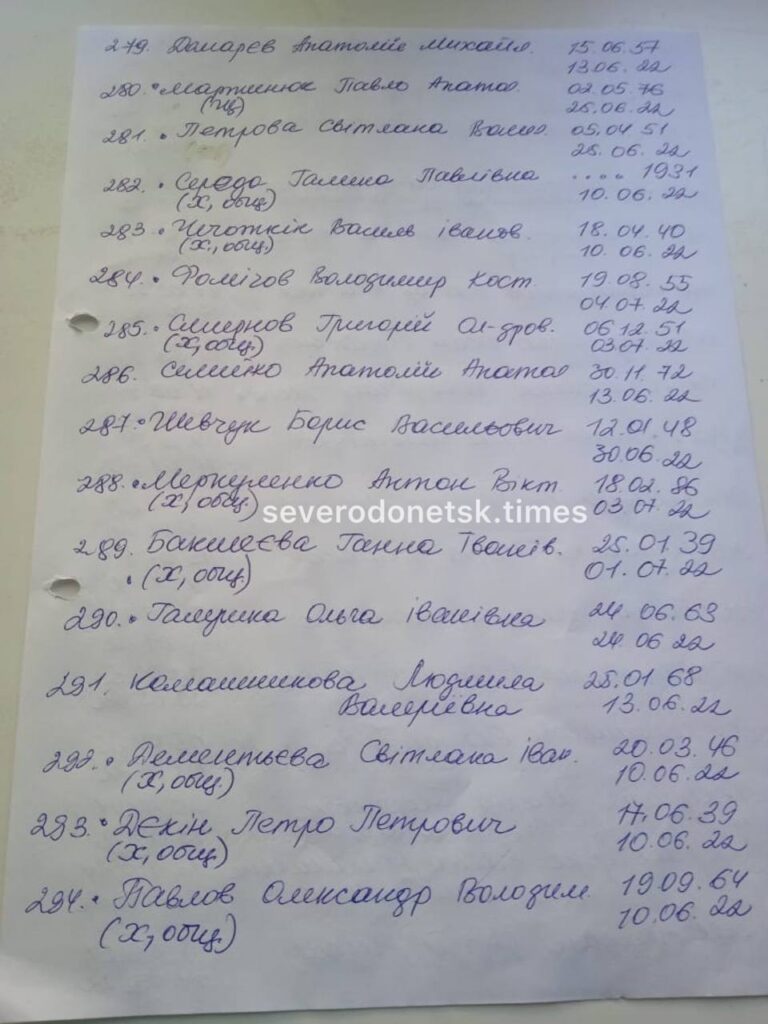 279. Дамарєв Анатолій Михайл. 15.06.57
13.06.22
280. Мартинюк Павло Анатол 02.05.76
(пц) 25.06.22
281. Петрова Світлана Васил 05.04 51
28.06.22
282. Середа Галина Павлівна ..... 1931
(х, общ.) 10.06.22
283. Чечоткін Василь іванов. 18.04.40
(х, общ.) 10.06.22
284. Фомічов Володимир Кост. 19.08.55
04.07.22
285. Смирнов Григорій Ол-дров. 06.12.51
(х, общ.) 03.07.22
286. Семейко Анатолій Анатол 30.11.72
13.06.22
287. Шевчук Борис Васильович 12.01.48
30.06.22
288. Меркуленко Антон Вікт. 18.02.86
(х, общ.) 03.07.22
severodonetsk.times
289. Бакшеєва Ганна Іванів. 25.01 39
(х, общ) 01.07.22
290. Ольга іванівна 24.06.63
24.06 22
291. Комашникова Людмила 25.01 68
Валеріївна 13.06.22
292. Дементьєва Світлана іван. 20.03.46
(х, общ.) 10.06.22
293. Дєкін Петро Петрович 17.06.39
(х, общ) 10.06.22
294. Павлов Олександр Володим. 19.09.64
(х, общ) 10.06.22